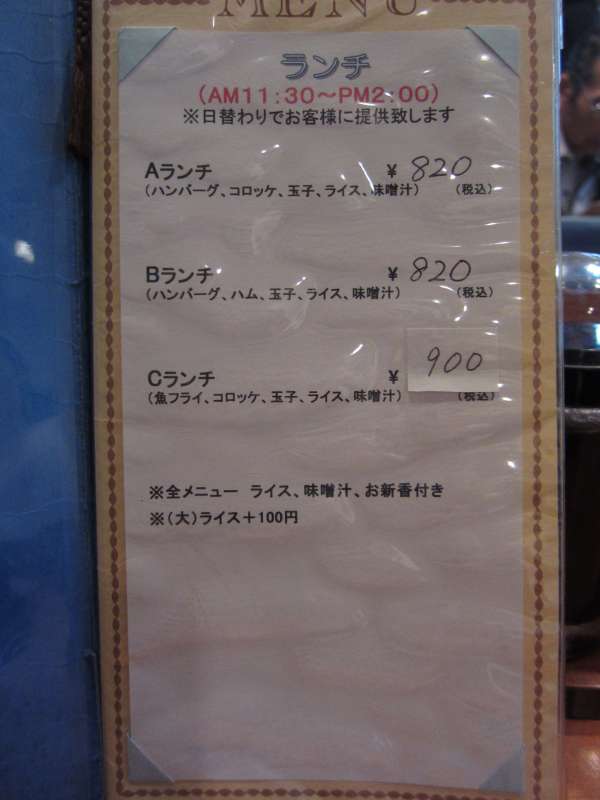 MENU
ランチ
(AM11:30～PM2:00)
※日替わりでお客様に提供致します
Aランチ ¥ 820
(ハンバーグ、コロッケ、玉子、ライス、味噌汁) (税込)
Bランチ ¥ 820
(ハンバーグ、ハム、玉子、ライス、味噌汁) (税込)
Cランチ ¥ 900
(魚フライ、コロッケ、玉子、ライス、味噌汁) (税込)
※全メニュー ライス、味噌汁、お新香付き
※(大)ライス＋100円